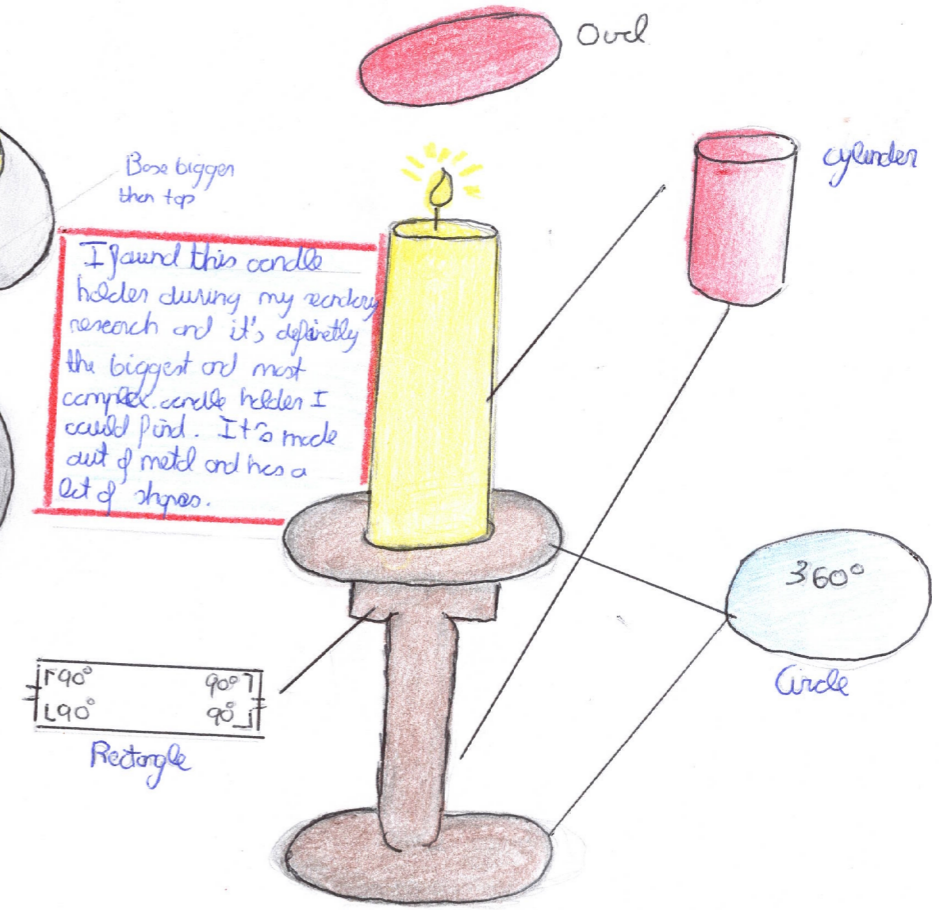 Oval
cylinder
Base bigger
than top
I found this candle
holder during my secondary
research and it's definetly
the biggest and most
complex candle holder I
could find. It's made
out of metal and has a
lot of shapes.
360°
Circle
90° 90°
90° 90°
Rectangle